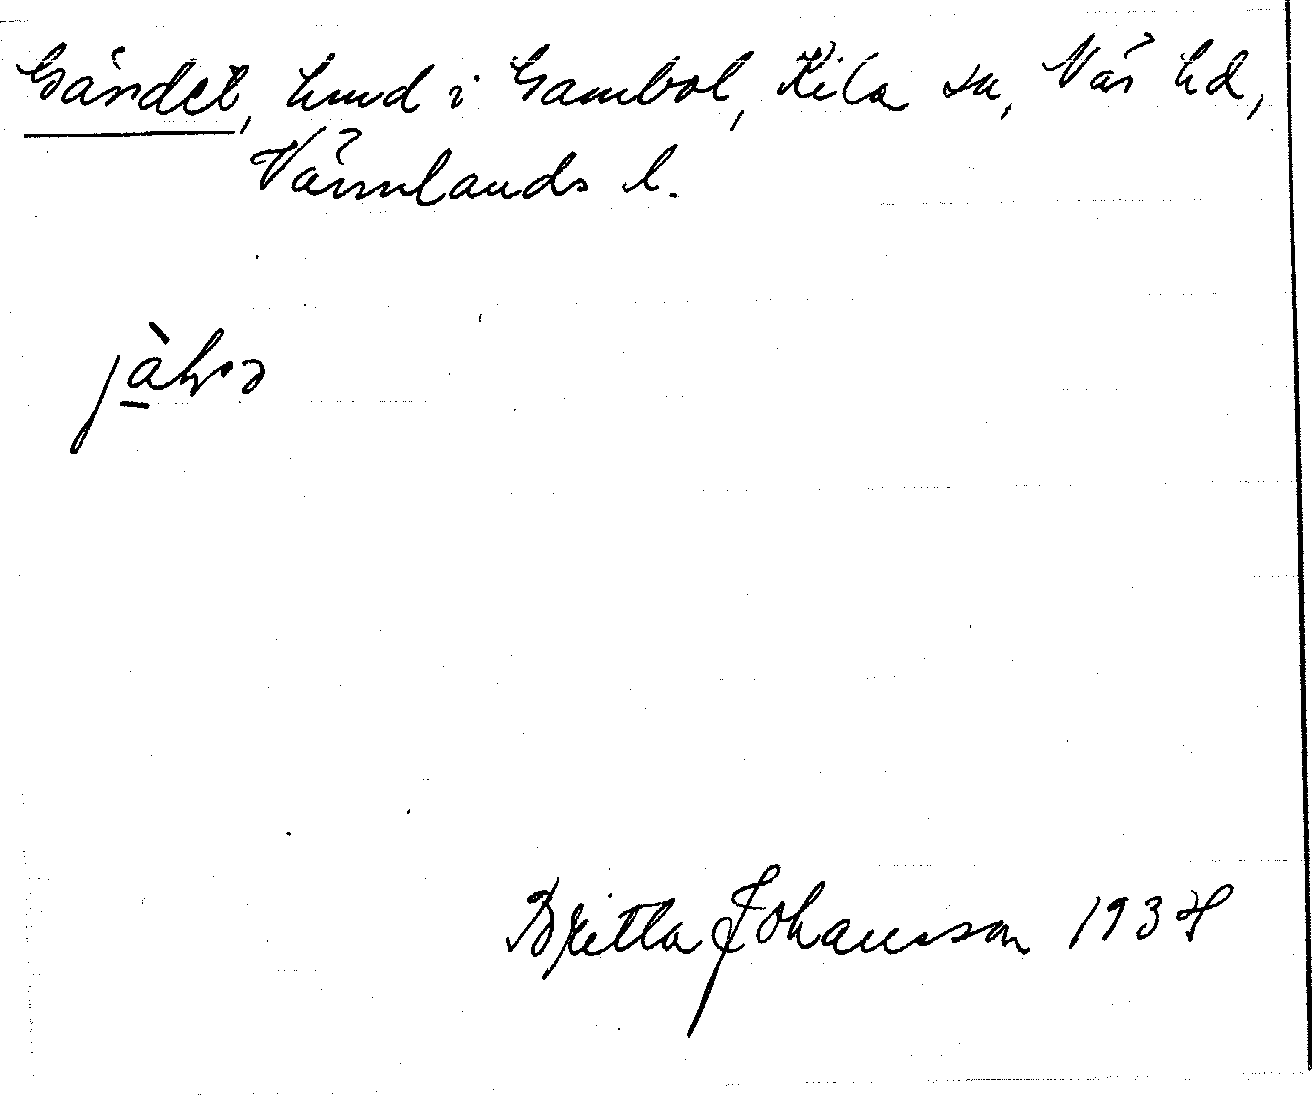 Gärdet, hmd i Gambol, Kila sn, Näs hd,
Värmlands l.
Britta Johansson 1934